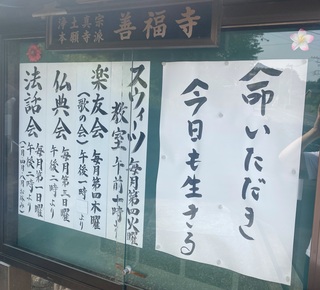 浄土真宗
本願寺派
善福寺
命いただき
今日も生きる
スウィーツ
教室
毎月第四火曜
午前十時より
楽友会
(歌の会)
毎月第四木曜
午後一時より
仏典会
毎月第三日曜
午後二時より
法話会
毎月第一日曜
午後二時より